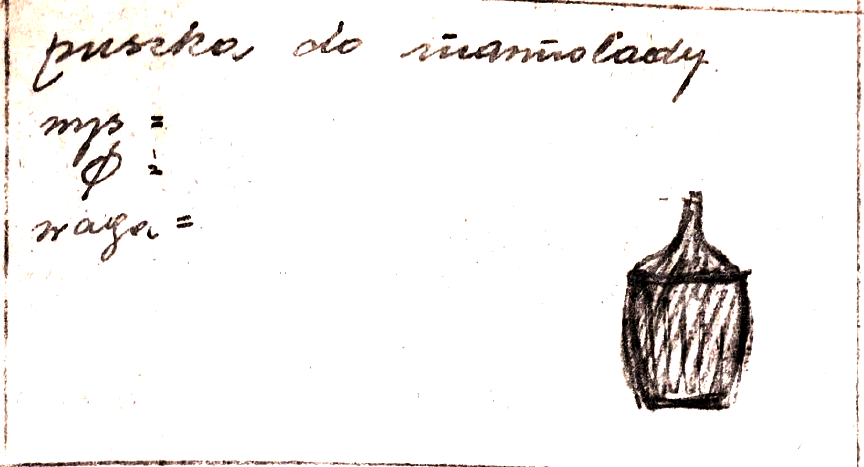 puszka do marmolady
wys =
φ =
waga =